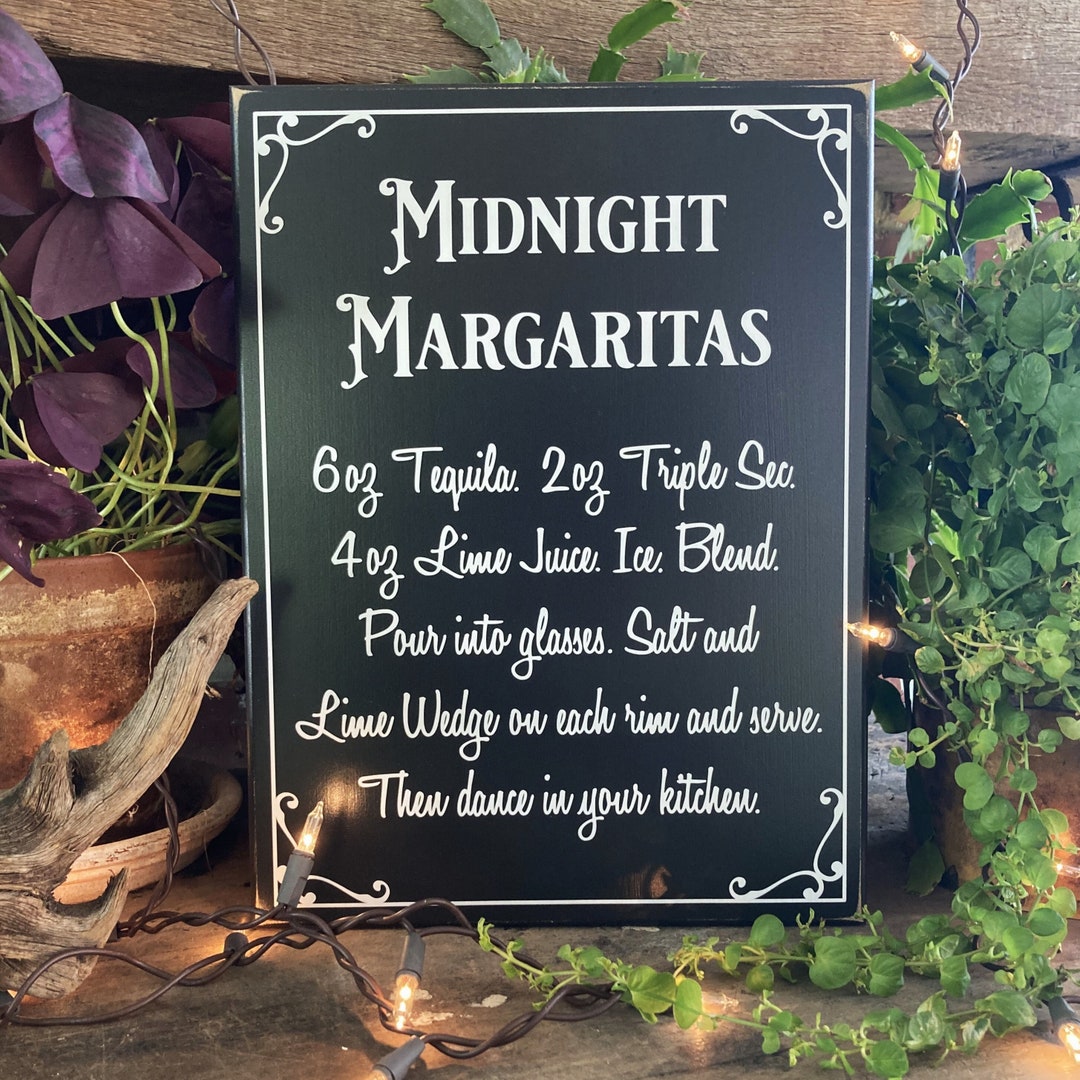 MIDNIGHT
MARGARITAS
6oz Tequila. 2oz Triple Sec.
4oz Lime Juice. Ice. Blend.
Pour into glasses. Salt and
Lime Wedge on each rim and serve.
Then dance in your kitchen.